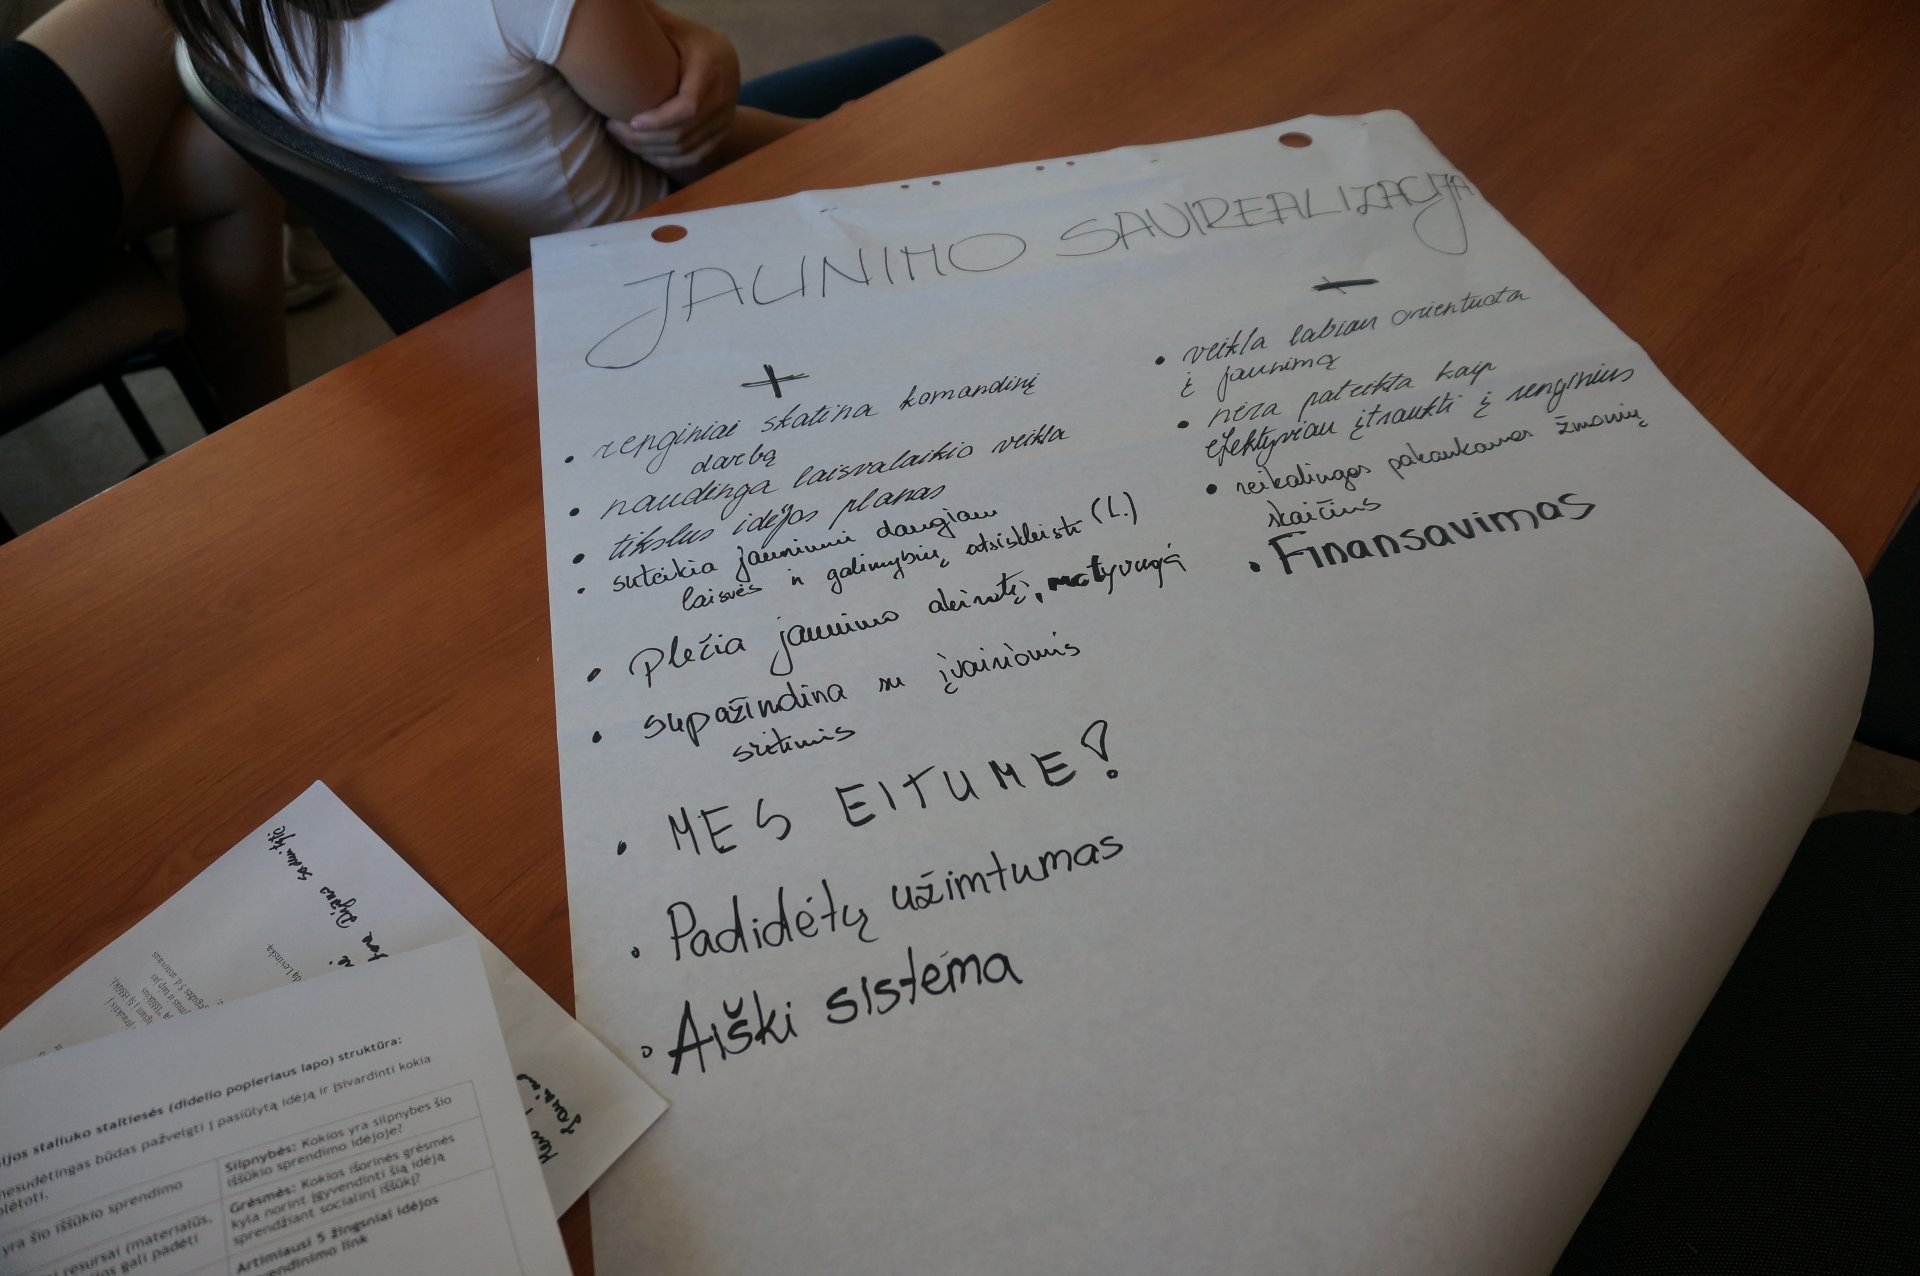 JAUNIMO SAVIREALIZACIJA
+
• renginiai skatina komandinį
darbą
• naudinga laisvalaikio veikla
• tikslus idėjos planas
• suteikia jaunimui daugiau
laisvės ir galimybių atsiskleisti (L.)
• plečia jaunimo akiratį, motyvuoja
• supažindina su įvairiomis
sritimis
• MES EITUME!
• Padidėtų užimtumas
• Aiški sistema
−
• veikla labiau orientuota
į jaunimą
• nėra pateikta kaip
efektyviau įtraukti į renginius
• reikalingas pakankamas žmonių
skaičius
• Finansavimas
jos staliuko staltiesės (didelio popieriaus lapo) struktūra:
nesudėtingas būdas pažvelgti į pasiūlytą idėją ir įsivardinti kokia
plėtoti.
yra šio iššūkio sprendimo
resursai (materialūs,
gali padėti
Silpnybės: Kokios yra silpnybės šio
iššūkio sprendimo idėjoje?
Grėsmės: Kokios išorinės grėsmės
kyla norint įgyvendinti šią idėją
sprendžiant socialinį iššūkį?
Artimiausi 5 žingsniai idėjos
vendinimo link